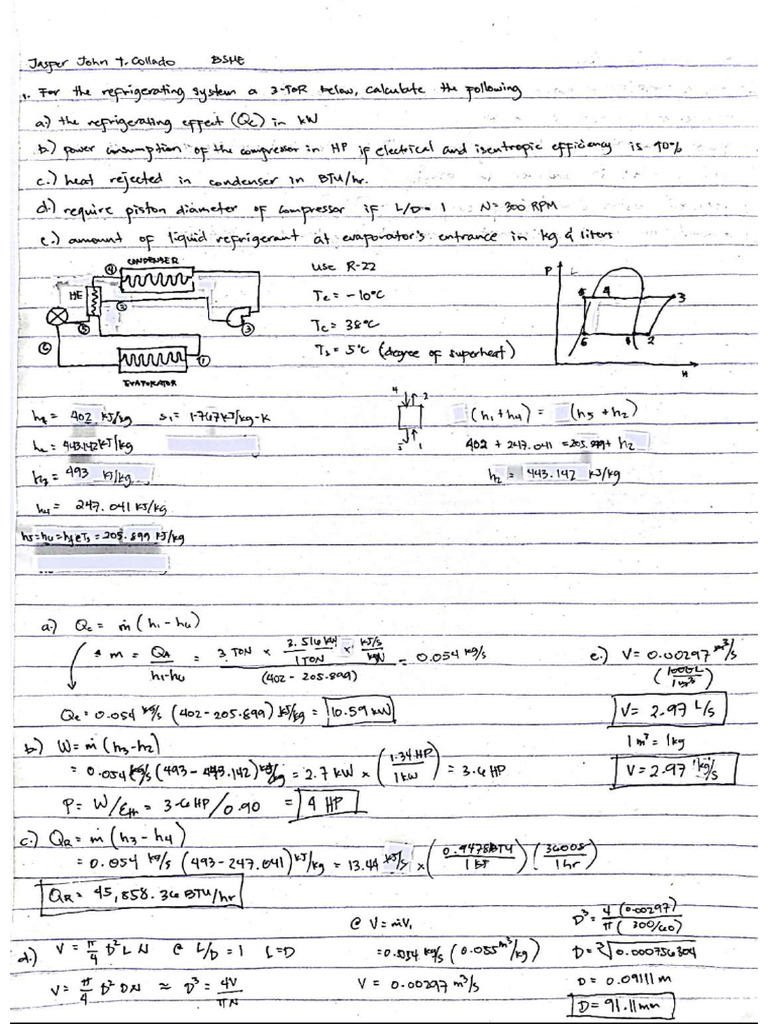 Jasper John T. Collado BSME
1. For the refrigerating system a 3-TOR below, calculate the following
a.) the refrigerating effect (Qe) in kW
b.) power consumption of the compressor in HP if electrical and isentropic efficiency is 90%
c.) heat rejected in condenser in BTU/hr.
d.) require piston diameter of compressor if L/D = 1 N = 300 RPM
e.) amount of liquid refrigerant at evaporator's entrance in kg & liters
CONDENSER
HE
EVAPORATOR
4
2
3
5
6
1
use R-22
Te = -10°C
Tc = 38°C
Ts = 5°C (degree of superheat)
P
5 4 3
6 1 2
H
402 kJ/kg s1 = 1.767 kJ/kg-K
443.142 kJ/kg
h3 = 493 kJ/kg
h4 = 247.041 kJ/kg
h5=h6=hf@Ts = 205.899 kJ/kg
4 2
5 1
(h1 + h4) = (h5 + h2)
402 + 247.041 = 205.899 + h2
h2 = 443.142 kJ/kg
a.) Qe = ṁ (h1 - h6)
m = = 3 TON × 3.516 kW / 1 TON × kJ/s / kW / (402 - 205.899) = 0.054 kg/s
h1-h6
Qe = 0.054 kg/s (402 - 205.899) kJ/kg = 10.59 kW
b.) W = ṁ (h3 - h2)
= 0.054 kg/s (493 - 443.142) kJ/kg = 2.7 kW × (1.34 HP / 1 kW) = 3.6 HP
P = W/Eth = 3.6 HP / 0.90 = 4 HP
c.) QR = ṁ (h3 - h4)
= 0.054 kg/s (493 - 247.041) kJ/kg = 13.44 kJ/s × (0.9478 BTU / 1 kJ) (3600 s / 1 hr)
QR = 45,858.36 BTU/hr
d.) V = π/4 D² L N @ L/D = 1 L = D
V = π/4 D² DN ≈ D³ = 4V / πN
@ V = ṁV1
= 0.054 kg/s (0.055 m³/kg)
V = 0.00297 m³/s
D³ = 4 (0.00297) / π (300/60)
D = ³√0.000756304
D = 0.09111 m
D = 91.11 mm
e.) V = 0.00297 m³/s
(1000L / 1m³)
V = 2.97 L/s
1 m³ = 1 kg
V = 2.97 kg/s